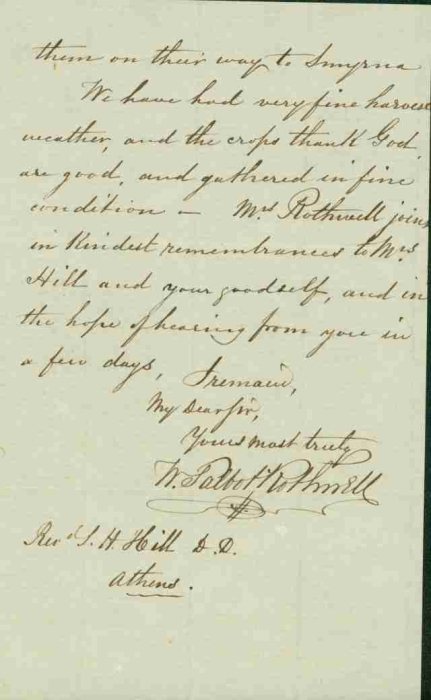 them on their way to Smyrna
We have had very fine harvest
weather, and the crops thank God
are good, and gathered in fine
condition — Mrs Rothwell joins
in Kindest remembrances to Mrs
Hill and your goodself, and in
the hope of hearing from you in
a few days, I remain,
My Dear Sir,
Yours most truly
W. Talbot Rothwell
Revd J. H. Hill D.D.
Athens.